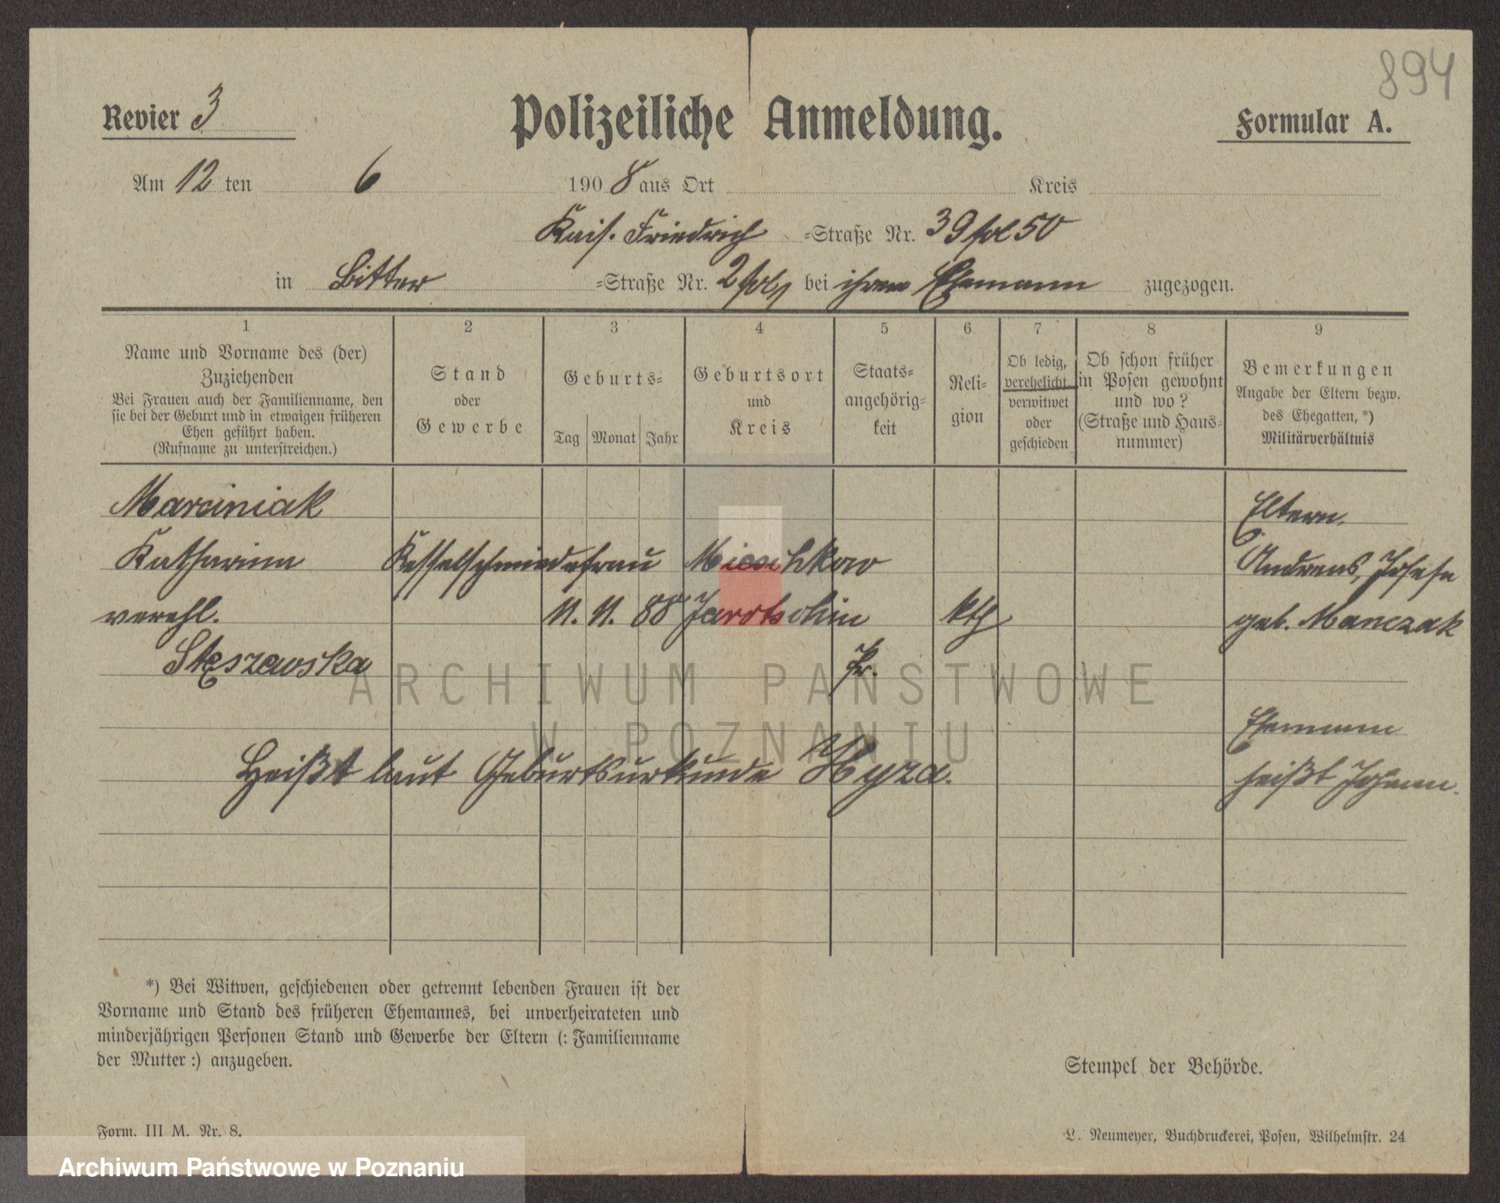 894
Revier 3
Polizeiliche Anmeldung.
Formular A.
Am 12 ten 6 1908 aus Ort Kreis
Kais. Friedrich -Straße Nr. 39 50
in Bitter -Straße Nr. 2 bei ihrem Ehemann zugezogen.
1 2 3 4 5 6 7 8 9
Name und Vorname des (der)
Zuziehenden
Bei Frauen auch der Familienname, den
sie bei der Geburt und in etwaigen früheren
Ehen geführt haben.
(Rufname zu unterstreichen.)
Stand
oder
Gewerbe
Geburts=
Tag Monat Jahr
Geburtsort
und
Kreis
Staats=
angehörig=
keit
Reli=
gion
Ob ledig,
verehelicht,
verwitwet
oder
geschieden
Ob schon früher
in Posen gewohnt
und wo?
(Straße und Haus=
nummer)
Bemerkungen
Angabe der Eltern bezw.
des Ehegatten, *)
Militärverhältnis
Marciniak Eltern.
Katharina Kesselschmiedefrau Mieschkow Andreas, Josefa
verehl. 11. 11. 88 Jarotschin kth geb. Manczak
Stęszewska Pr.
Ehemann
Heißt laut Geburtsurkunde Hyza. heißt Johann.
ARCHIWUM PAŃSTWOWE
W POZNANIU
*) Bei Witwen, geschiedenen oder getrennt lebenden Frauen ist der
Vorname und Stand des früheren Ehemannes, bei unverheirateten und
minderjährigen Personen Stand und Gewerbe der Eltern (: Familienname
der Mutter :) anzugeben.
Stempel der Behörde.
Form. III M. Nr. 8.
L. Neumeyer, Buchdruckerei, Posen, Wilhelmstr. 24
Archiwum Państwowe w Poznaniu